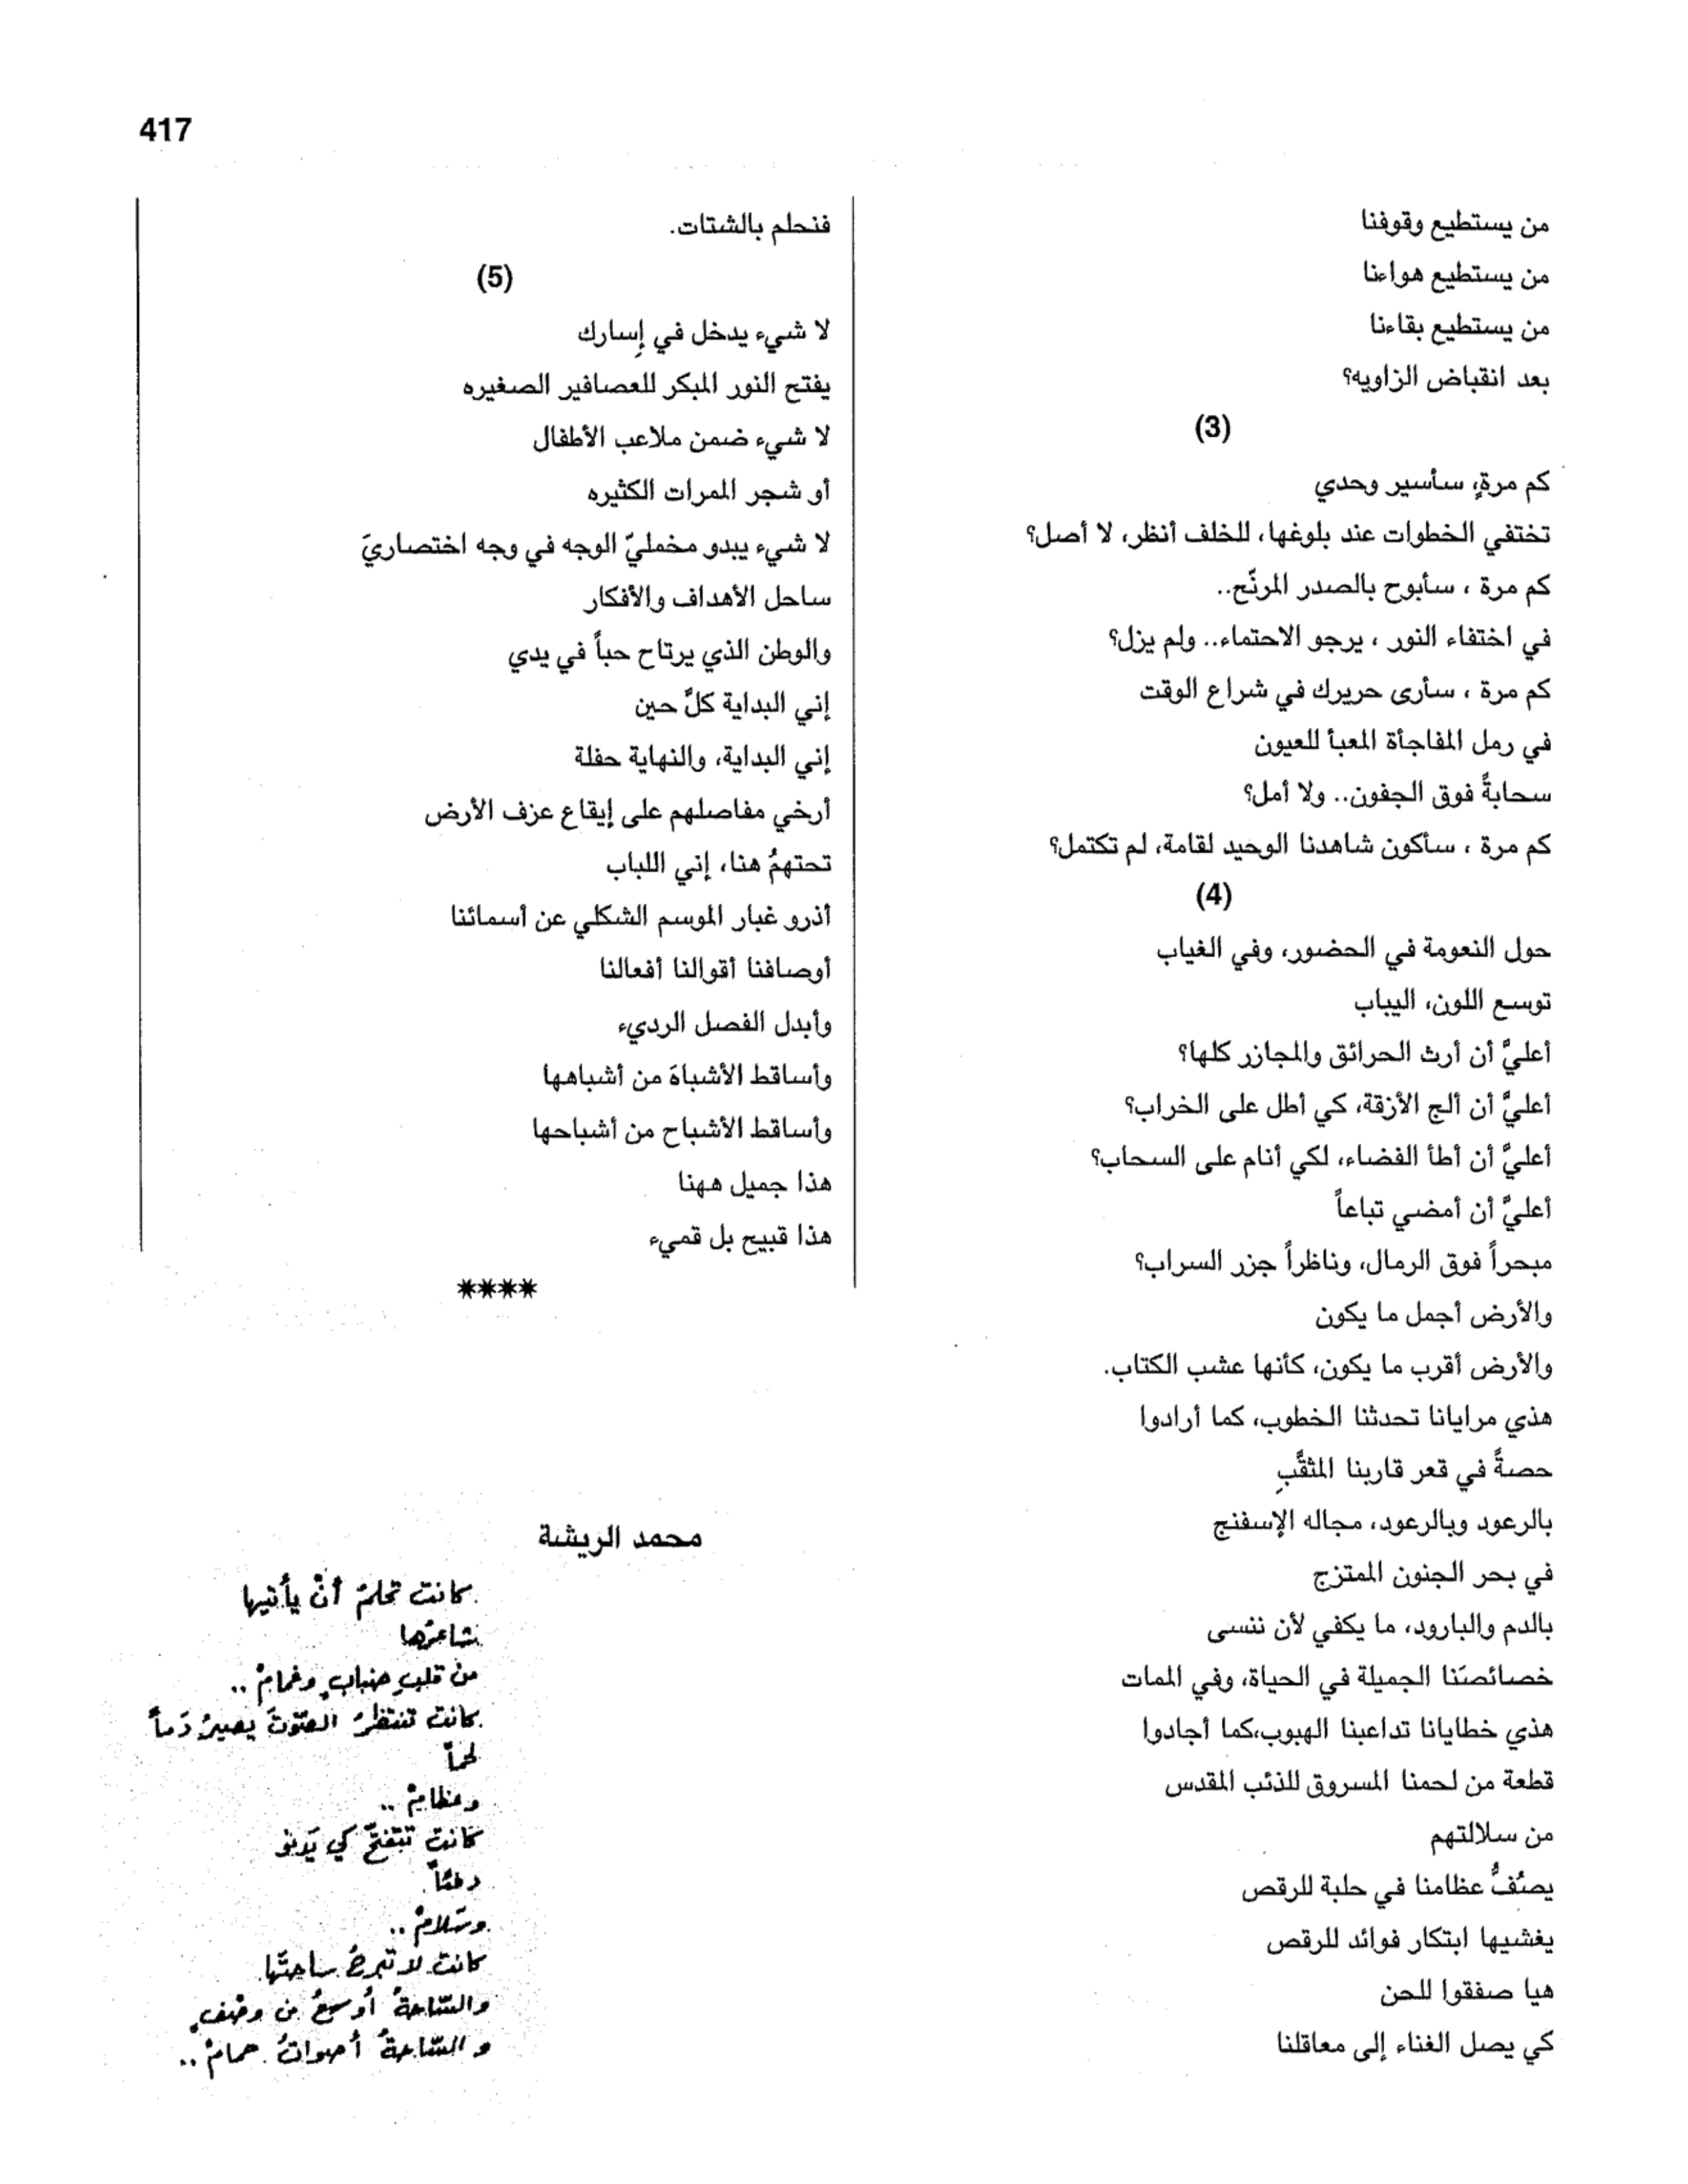 417
من يستطيع وقوفنا
من يستطيع هواءنا
من يستطيع بقاءنا
بعد انقباض الزاويه؟
(3)
كم مرةٍ، سأسير وحدي
تختفي الخطوات عند بلوغها، للخلف أنظر، لا أصل؟
كم مرة ، سأبوح بالصدر المرنّح..
في اختفاء النور ، يرجو الاحتماء.. ولم يزل؟
كم مرة ، سأرى حريرك في شراع الوقت
في رمل المفاجأة المعبأ للعيون
سحابةً فوق الجفون.. ولا أمل؟
كم مرة ، سأكون شاهدنا الوحيد لقامة، لم تكتمل؟
(4)
حول النعومة في الحضور، وفي الغياب
توسع اللون، اليباب
أعليَّ أن أرث الحرائق والمجازر كلها؟
أعليَّ أن ألج الأزقة، كي أطل على الخراب؟
أعليَّ أن أطأ الفضاء، لكي أنام على السحاب؟
أعليَّ أن أمضي تباعاً
مبحراً فوق الرمال، وناظراً جزر السراب؟
والأرض أجمل ما يكون
والأرض أقرب ما يكون، كأنها عشب الكتاب.
هذي مرايانا تحدثنا الخطوب، كما أرادوا
حصةً في قعر قاربنا المثقَّبِ
بالرعود وبالرعود، مجاله الإسفنج
في بحر الجنون الممتزج
بالدم والبارود، ما يكفي لأن ننسى
خصائصنَا الجميلة في الحياة، وفي الممات
هذي خطايانا تداعبنا الهبوب،كما أجادوا
قطعة من لحمنا المسروق للذئب المقدس
من سلالتهم
يصُفُّ عظامنا في حلبة للرقص
يغشيها ابتكار فوائد للرقص
هيا صفقوا للحن
كي يصل الغناء إلى معاقلنا
فنحلم بالشتات.
(5)
لا شيء يدخل في إِسارك
يفتح النور المبكر للعصافير الصغيره
لا شيء ضمن ملاعب الأطفال
أو شجر الممرات الكثيره
لا شيء يبدو مخمليّ الوجه في وجه اختصاريَ
ساحل الأهداف والأفكار
والوطن الذي يرتاح حباً في يدي
إني البداية كلَّ حين
إني البداية، والنهاية حفلة
أرخي مفاصلهم على إيقاع عزف الأرض
تحتهمُ هنا، إني اللباب
أذرو غبار الموسم الشكلي عن أسمائنا
أوصافنا أقوالنا أفعالنا
وأبدل الفصل الرديء
وأساقط الأشباهَ من أشباهها
وأساقط الأشباح من أشباحها
هذا جميل ههنا
هذا قبيح بل قميء
****
محمد الريشة
كانت تحلمُ أنْ يأتيها
شاعرُها
من قلبِ ضبابٍ وغمامْ ..
كانت تنتظرُ الصّوتَ يصيرُ دَماً
لحماً
وعظامْ ..
كانت تتفتّحُ كي يَدنو
دفئاً
وسَلامْ ..
كانت لا تبرحُ ساحتَها
والسّاحةُ أوسعُ من وصْفٍ
والسّاحةُ أصواتُ حمامْ ..